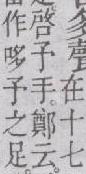 在十七
啓予手。鄭云。
作哆予之足。